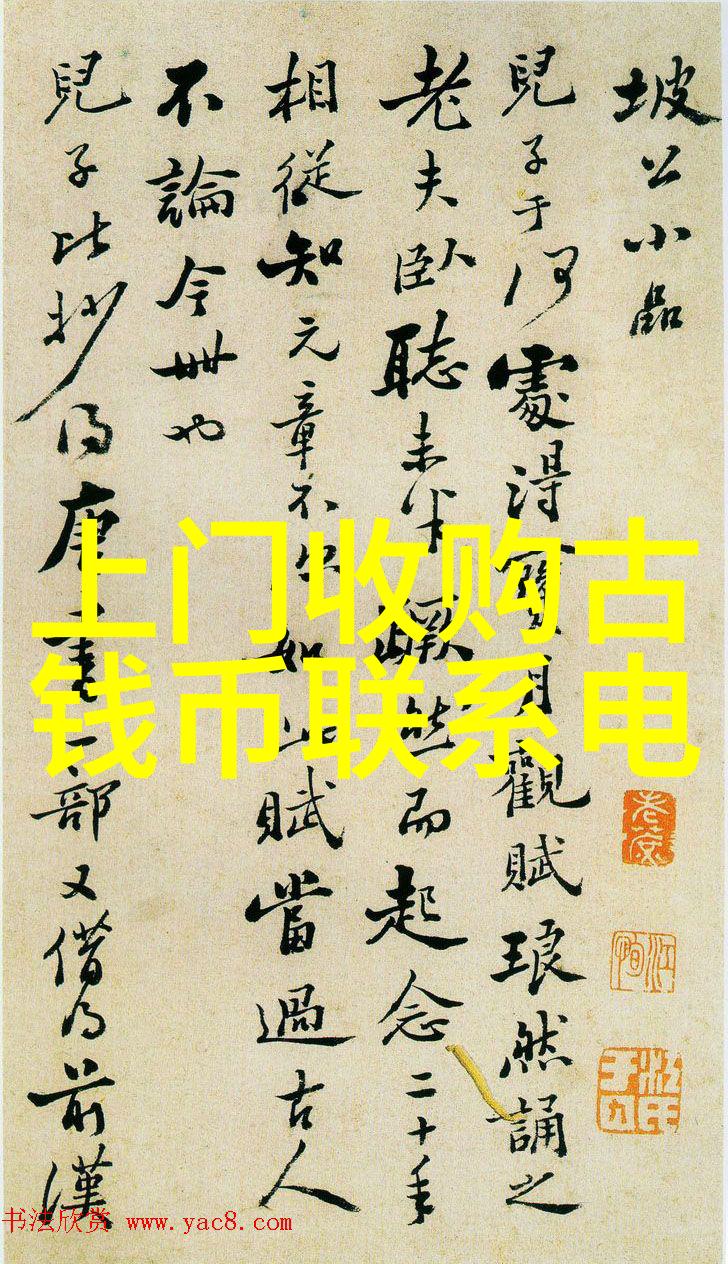 坡公小品
兒子于何處得寶月觀賦琅然誦之
老夫臥聽未半蹶然而起念二十年
相從知元章不盡如此賦當過古人
不論今世也
兒子比抄得唐書一部又借得前漢
上门收购古
钱币联系电
书法欣赏 www.yac8.com